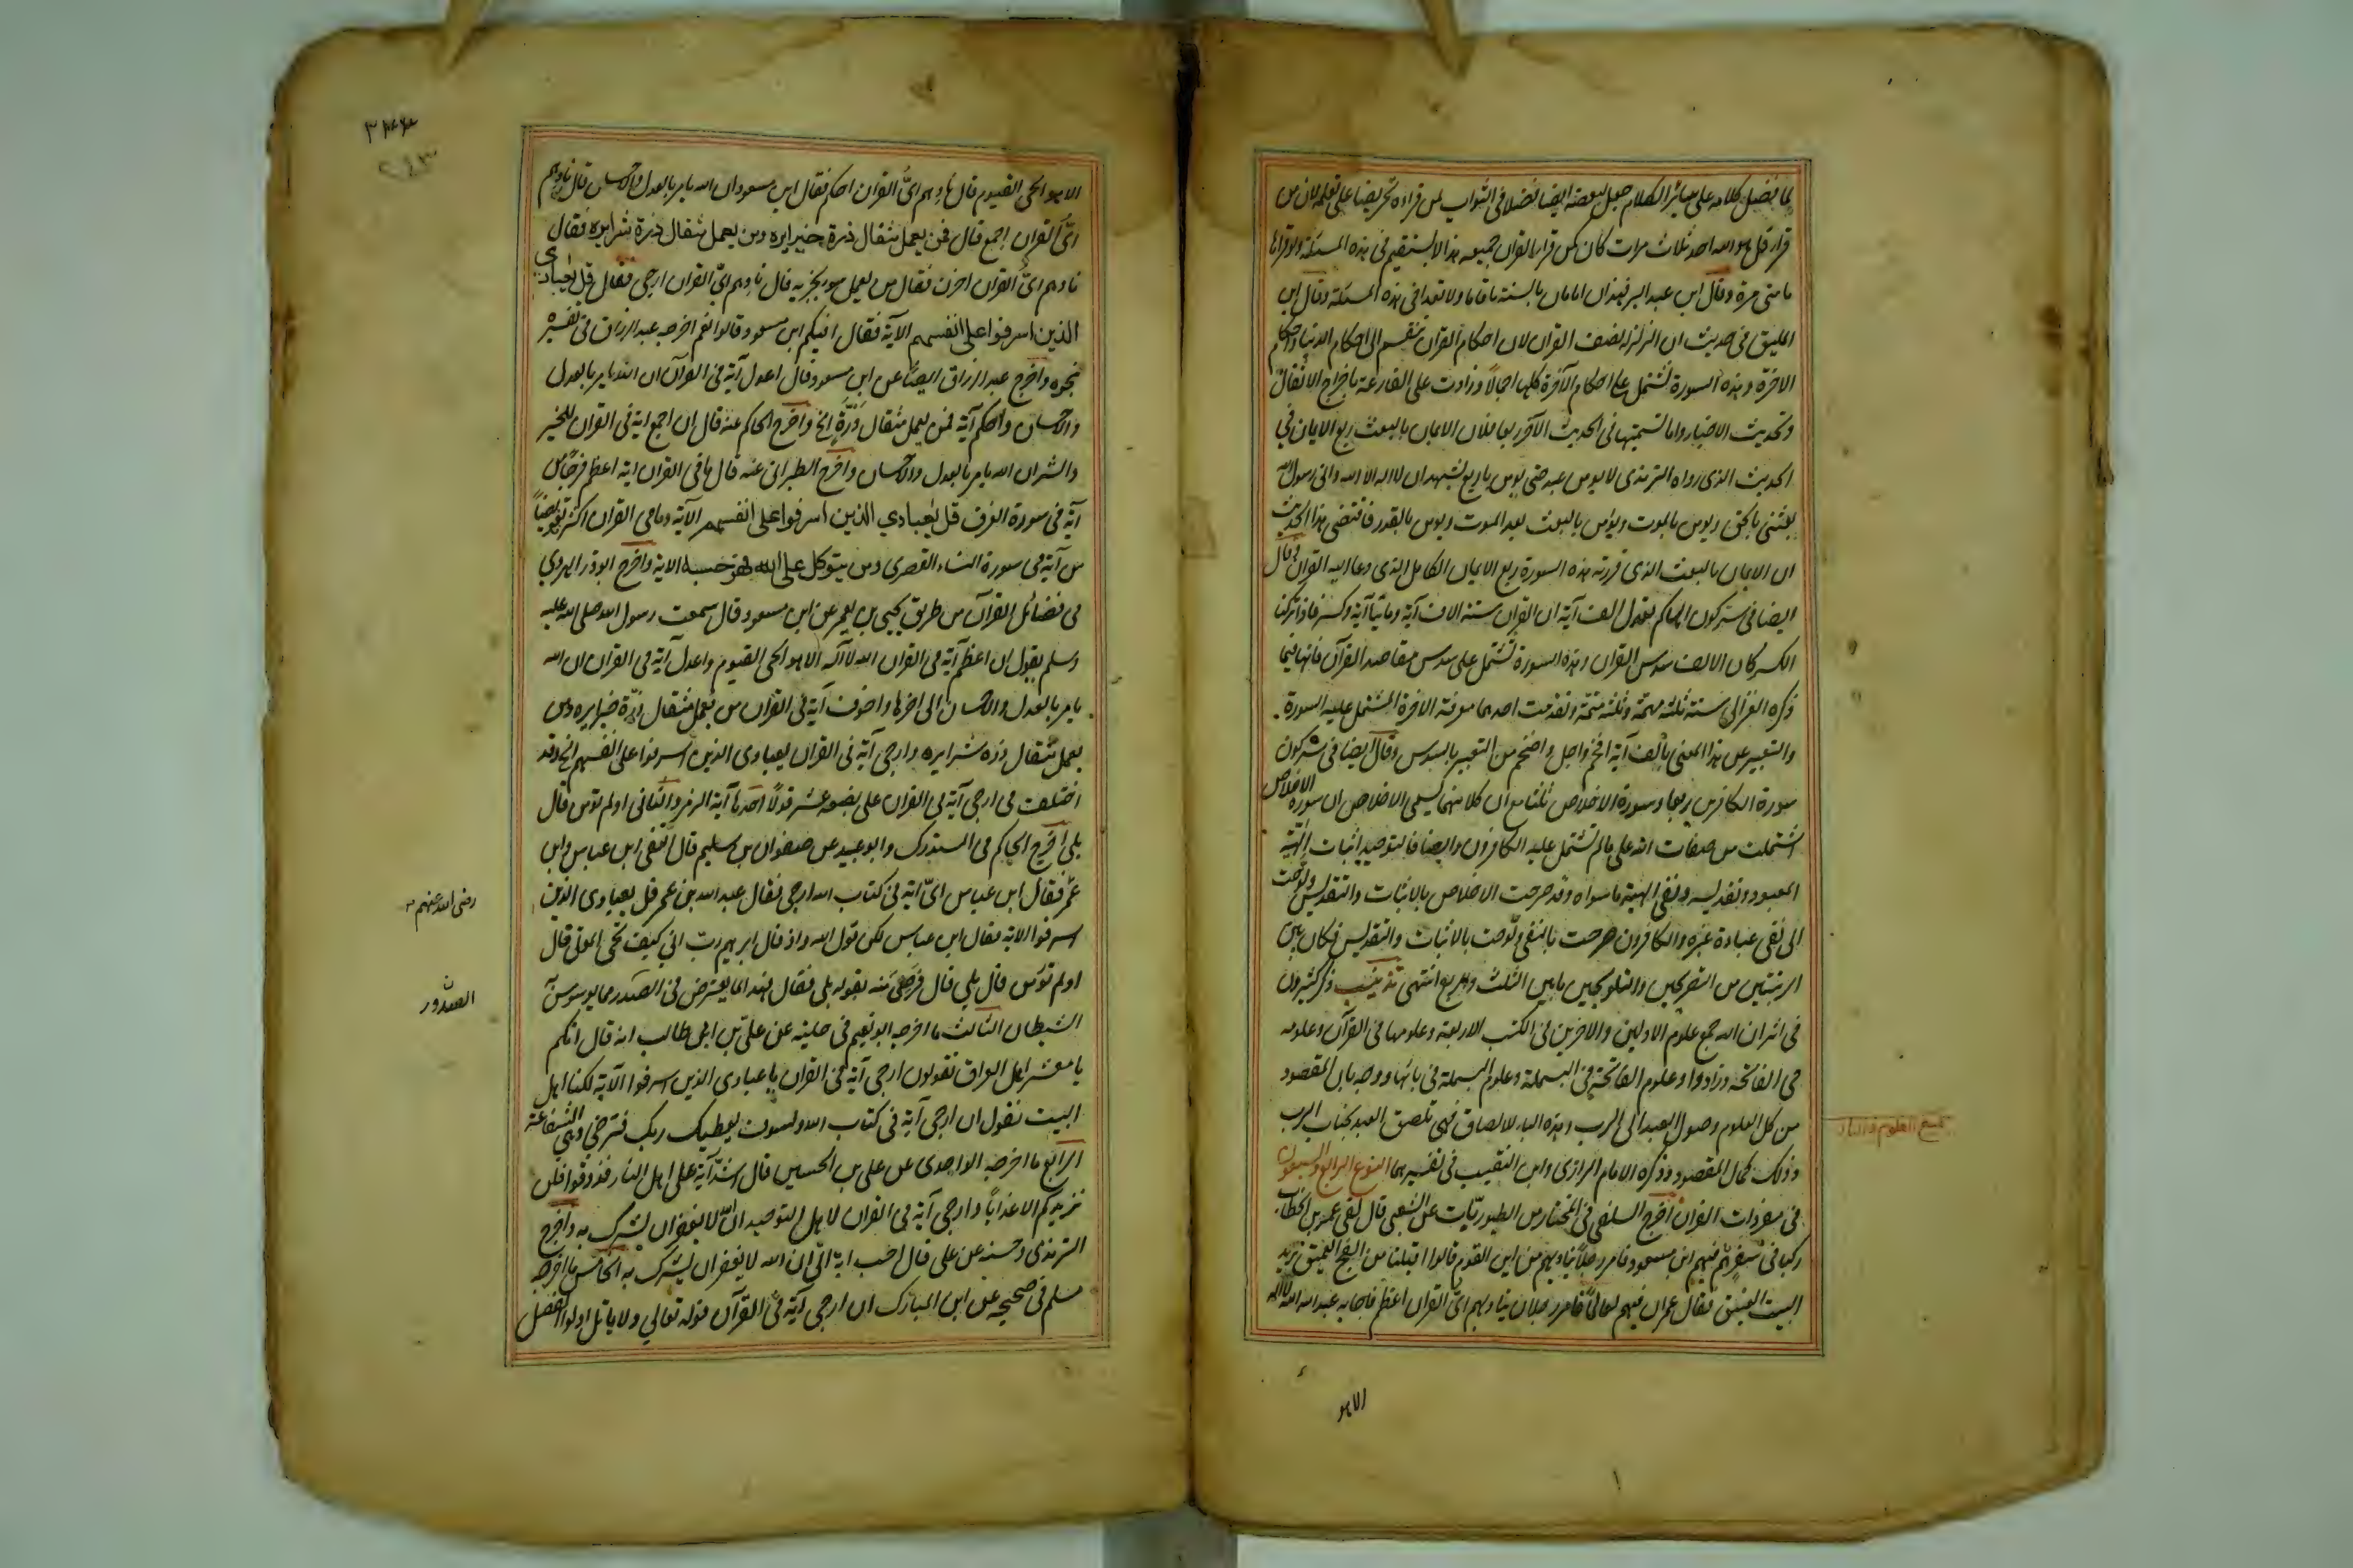 لما فضل كلامه على سائر الكلام جعل لبعضه ايضا فضلا في الثواب لمن قراءه تحريضا على تعلمه لا ان من
قرأ قل هو الله احد ثلاث مرات كان كمن قرأ القران جميعه هذا لا يستقيم في هذه المسئلة ولو قرأها
مائتي مرة وقال ابن عبد البر فهذان امامان بالسنة ما قاما ولا قعدا في هذه المسئلة وقال ابن
الميلق في حديث ان الزلزلة نصف القران لان احكام القران تنقسم الى احكام الدنيا واحكام
الاخرة وهذه السورة تشتمل على احكام الآخرة كلها اجمالا وزادت على القارعة باخراج الاثقال
وتحديث الاخبار واما تسميتها في الحديث الآخر ربعا فلان الايمان بالبعث ربع الايمان في
الحديث الذي رواه الترمذي لا يومن عبد حتى يومن باربع يشهد ان لا اله الا الله واني رسول الله
بعثني بالحق ويومن بالموت ويؤمن بالبعث بعد الموت ويومن بالقدر فاقتضى هذا الحديث
ان الايمان بالبعث الذي قررته هذه السورة ربع الايمان الكامل الذي دعا اليه القران وقال
ايضا في سر كون الهاكم تعدل الف آية ان القران ستة الاف آية ومائتا آية وكسر فاذا تركنا
الكسر كان الالف سدس القران وهذه السورة تشتمل على سدس مقاصد القرآن فانها فيما
ذكره الغزالي ستة ثلثة مهمة وثلثة متمة وتقدمت احدها معرفة الاخرة المشتمل عليه السورة
والتعبير عن هذا المعنى بألف آية افخم واجل واضخم من التعبير بالسدس وقال ايضا في سر كون
سورة الكافرين ربعا وسورة الاخلاص ثلثا مع ان كلا منهما يسمى الاخلاص ان سورة الاخلاص
اشتملت من صفات الله على ما لم تشتمل عليه الكافرون وايضا فالتوحيد اثبات إلٰهية
المعبود وتقديسه ونفي الهية ما سواه وقد صرحت الاخلاص بالاثبات والتقديس ولوحت
الى نفي عبادة غيره والكافرون صرحت بالنفي ولوحت بالاثبات والتقديس فكان بين
الرتبتين من التصريحين والتلويحين ما بين الثلث والربع انتهى تذنيب ذكر كثيرون
في اثر ان الله جمع علوم الاولين والاخرين في الكتب الاربعة وعلومها في القرآن وعلومه
في الفاتحة وزادوا وعلوم الفاتحة في البسملة وعلوم البسملة في بائها ووجه بان المقصود
من كل العلوم وصول العبد الى الرب وهذه الباء لالصاق فهي تلصق العبد بجناب الرب
وذلك كمال المقصود وذكره الامام الرازي وابن النقيب في تفسيرهما النوع الرابع والسبعون
في مفردات القران اخرج السلفي في المختار من الطيوريات عن الشعبي قال لقي عمر بن الخطاب
ركبا في سفر فيهم ابن مسعود فامر رجلا يناديهم من اين القوم قالوا اقبلنا من الفج العميق نريد
البيت العتيق فقال عمر ان فيهم لعالما فامر رجلا ان يناديهم اي القران اعظم فاجابه عبد الله الله لا اله
جميع العلوم في الباء
الا هو
الا هو الحي القيوم قال نادهم ايّ القران احكم فقال ابن مسعود ان الله يامر بالعدل والاحسان قال نادهم
ايّ القران اجمع قال فمن يعمل مثقال ذرة خيرا يره ومن يعمل مثقال ذرة شرا يره فقال
نادهم ايّ القران احزن فقال من يعمل سوء يجز به قال نادهم ايّ القران ارجى فقال قل يٰعبادي
الذين اسرفوا على انفسهم الآية فقال افيكم ابن مسعود قالوا نعم اخرجه عبد الرزاق في تفسيره
بنحوه واخرج عبد الرزاق ايضا عن ابن مسعود قال اعدل آية في القرآن ان الله يامر بالعدل
والاحسان واحكم آية فمن يعمل مثقال ذرة الخ واخرج الحاكم عنه قال ان اجمع اية في القران للخير
والشر ان الله يامر بالعدل والاحسان واخرج الطبراني عنه قال ما في القران اية اعظم فرجا من
آية في سورة الغرف قل يٰعبادي الذين اسرفوا على انفسهم الآية وما في القران اكثر تفويضا
من آية في سورة النساء القصرى ومن يتوكل على الله فهو حسبه الاية واخرج ابو ذر الهروي
في فضائل القرآن من طريق يحيى بن يعمر عن ابن مسعود قال سمعت رسول الله صلى الله عليه
وسلم يقول ان اعظم آية في القران الله لا اله الا هو الحي القيوم واعدل آية في القران ان الله
يامر بالعدل والاحسان الى اخرها واخوف آية في القران من يعمل مثقال ذرة خيرا يره ومن
يعمل مثقال ذره شرا يره وارجى آية في القران يعبادي الذين اسرفوا على انفسهم الخ وقد
اختلف في ارجى آية في القران على بضعة عشر قولا احدها آية الزمر والثاني اولم تؤمن قال
بلى اخرج الحاكم في المستدرك وابو عبيد عن صفوان بن سليم قال التقى ابن عباس وابن
عمر فقال ابن عباس ايّ اية في كتاب الله ارجى فقال عبد الله بن عمر قل يعبادي الذين
اسرفوا الاية فقال ابن عباس لكن قول الله واذ قال ابرهيم رب ارني كيف تحي الموتى قال
اولم تؤمن قال بلى قال فرضى منه بقوله بلى فقال فهذا لما يعترض في الصدر مما يوسوس به
الشيطان الثالث ما اخرجه ابو نعيم في حلية عن علي بن ابي طالب انه قال انكم
يا معشر اهل العراق تقولون ارجى آية في القران يا عبادي الذين اسرفوا الآية لكنا اهل
البيت نقول ان ارجى آية في كتاب الله ولسوف يعطيك ربك فترضى وهي الشفاعة
الرابع ما اخرجه الواحدي عن علي بن الحسين قال اشد آية على اهل النار فذوقوا فلن
نزيدكم الا عذابا وارجى آية في القران لاهل التوحيد ان الله لا يغفر ان يشرك به واخرج
الترمذي وحسنه عن علي قال احب اية اليّ ان الله لا يغفر ان يشرك به الخامس ما اخرجه
مسلم في صحيحه عن ابن المبارك ان ارجى آية في القرآن قوله تعالى ولا ياتل اولوا الفضل
رضي الله عنهم
الصدور